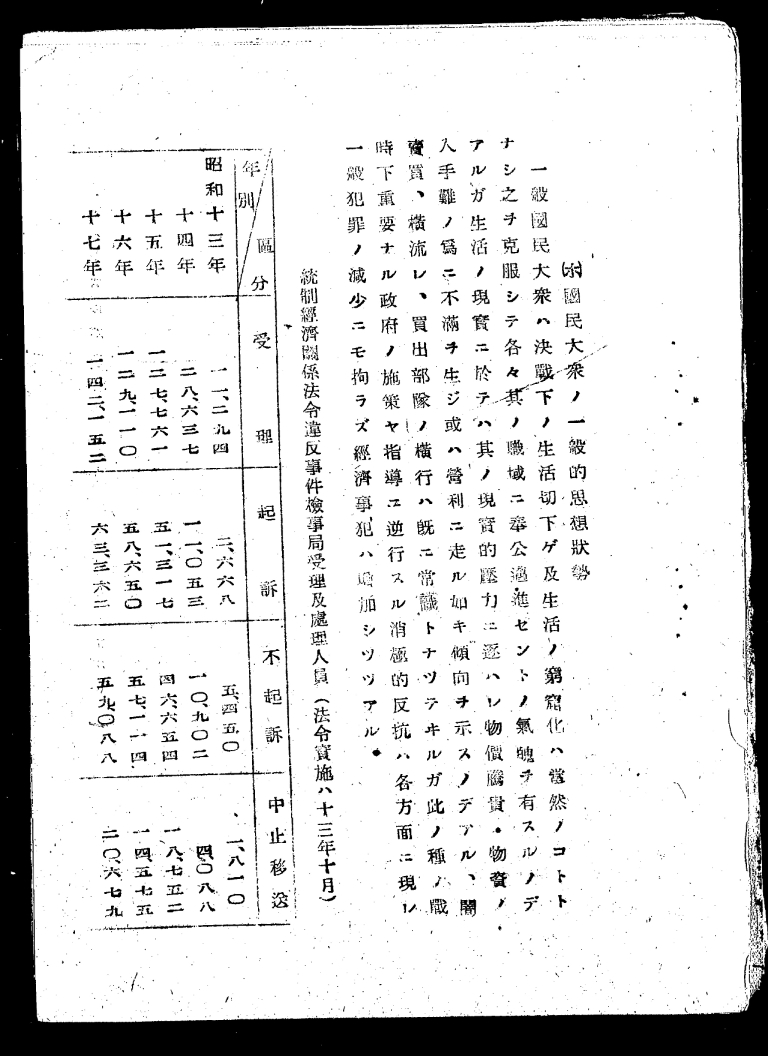 (ホ)國民大衆ノ一般的思想狀勢
一般國民大衆ハ決戰下ノ生活切下ゲ及生活ノ窮窟化ハ當然ノコトト
ナシ之ヲ克服シテ各々其ノ職域ニ奉公邁進セントノ氣魄ヲ有スルノデ
アルガ生活ノ現實ニ於テハ其ノ現實的壓力ニ逐ハレ物價騰貴・物資ノ
入手難ノ爲ニ不滿ヲ生ジ或ハ營利ニ走ル如キ傾向ヲ示スノデアル、闇
賣買、橫流レ、買出部隊ノ橫行ハ旣ニ常識トナツテヰルガ此ノ種ノ戰
時下重要ナル政府ノ施策ヤ指導ニ逆行スル消極的反抗ハ各方面ニ現レ
一般犯罪ノ減少ニモ拘ラズ經濟事犯ハ增加シツツアル
統制經濟關係法令違反事件檢事局受理及處理人員(法令實施ハ十三年十月)
年別/區分 受理 起訴 不起訴 中止移送
昭和十三年 一一、二九四 二、六六八 五、四五〇 一、八一〇
十四年 二八、六三七 一一、〇五三 一〇、九〇二 四、〇八八
十五年 一二七、七六一 五一、三一七 四六、六五四 一八、七五二
十六年 一二九、一一〇 五八、六五〇 五七、一一四 一四、五七五
十七年 一四二、一五二 六三、三六二 五九、〇八八 二〇、六七九